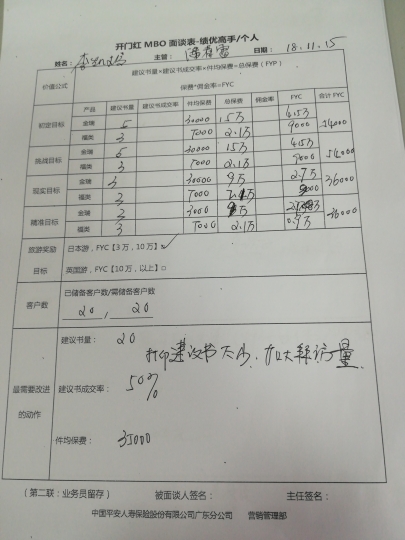 开门红 MBO 面谈表-绩优高手/个人
姓名： 主管： 日期： 18.11.15
价值公式 建议书量×建议书成交率×件均保费=总保费（FYP）
保费*佣金率=FYC
产品 建议书量 建议书成交率 件均保费 总保费 佣金率 FYC 合计 FYC
初定目标 金瑞 5 30000 15万 4.5万 54000
福类 3 7000 2.1万 9000
挑战目标 金瑞 5 30000 15万 4.5万 54000
福类 3 7000 2.1万 9000
现实目标 金瑞 3 30000 9万 2.7万 36000
福类 3 7000 2.1万 9000
精准目标 金瑞 3 9万 36000
福类 3 7000 2.1万 0.9万
旅游奖励 日本游，FYC【3万，10万】 ✓
目标 英国游，FYC【10万，以上】○
客户数 已储备客户数/需储备客户数
20 , 20
最需要改进的动作
建议书量： 20
打印建议书 加大拜访量
建议书成交率： 50%
件均保费： 35000
（第二联：业务员留存） 被面谈人签名： 主任签名：
中国平安人寿保险股份有限公司广东分公司 营销管理部